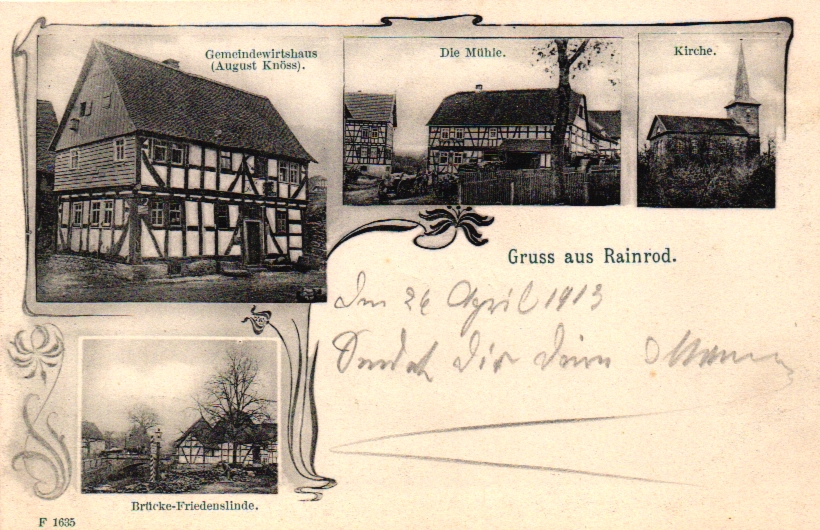 Gemeindewirtshaus
(August Knöss).
Die Mühle.
Kirche.
Gruss aus Rainrod.
Den 26 April 1913
Sendet Dir Deine
Brücke-Friedenslinde.
F 1635